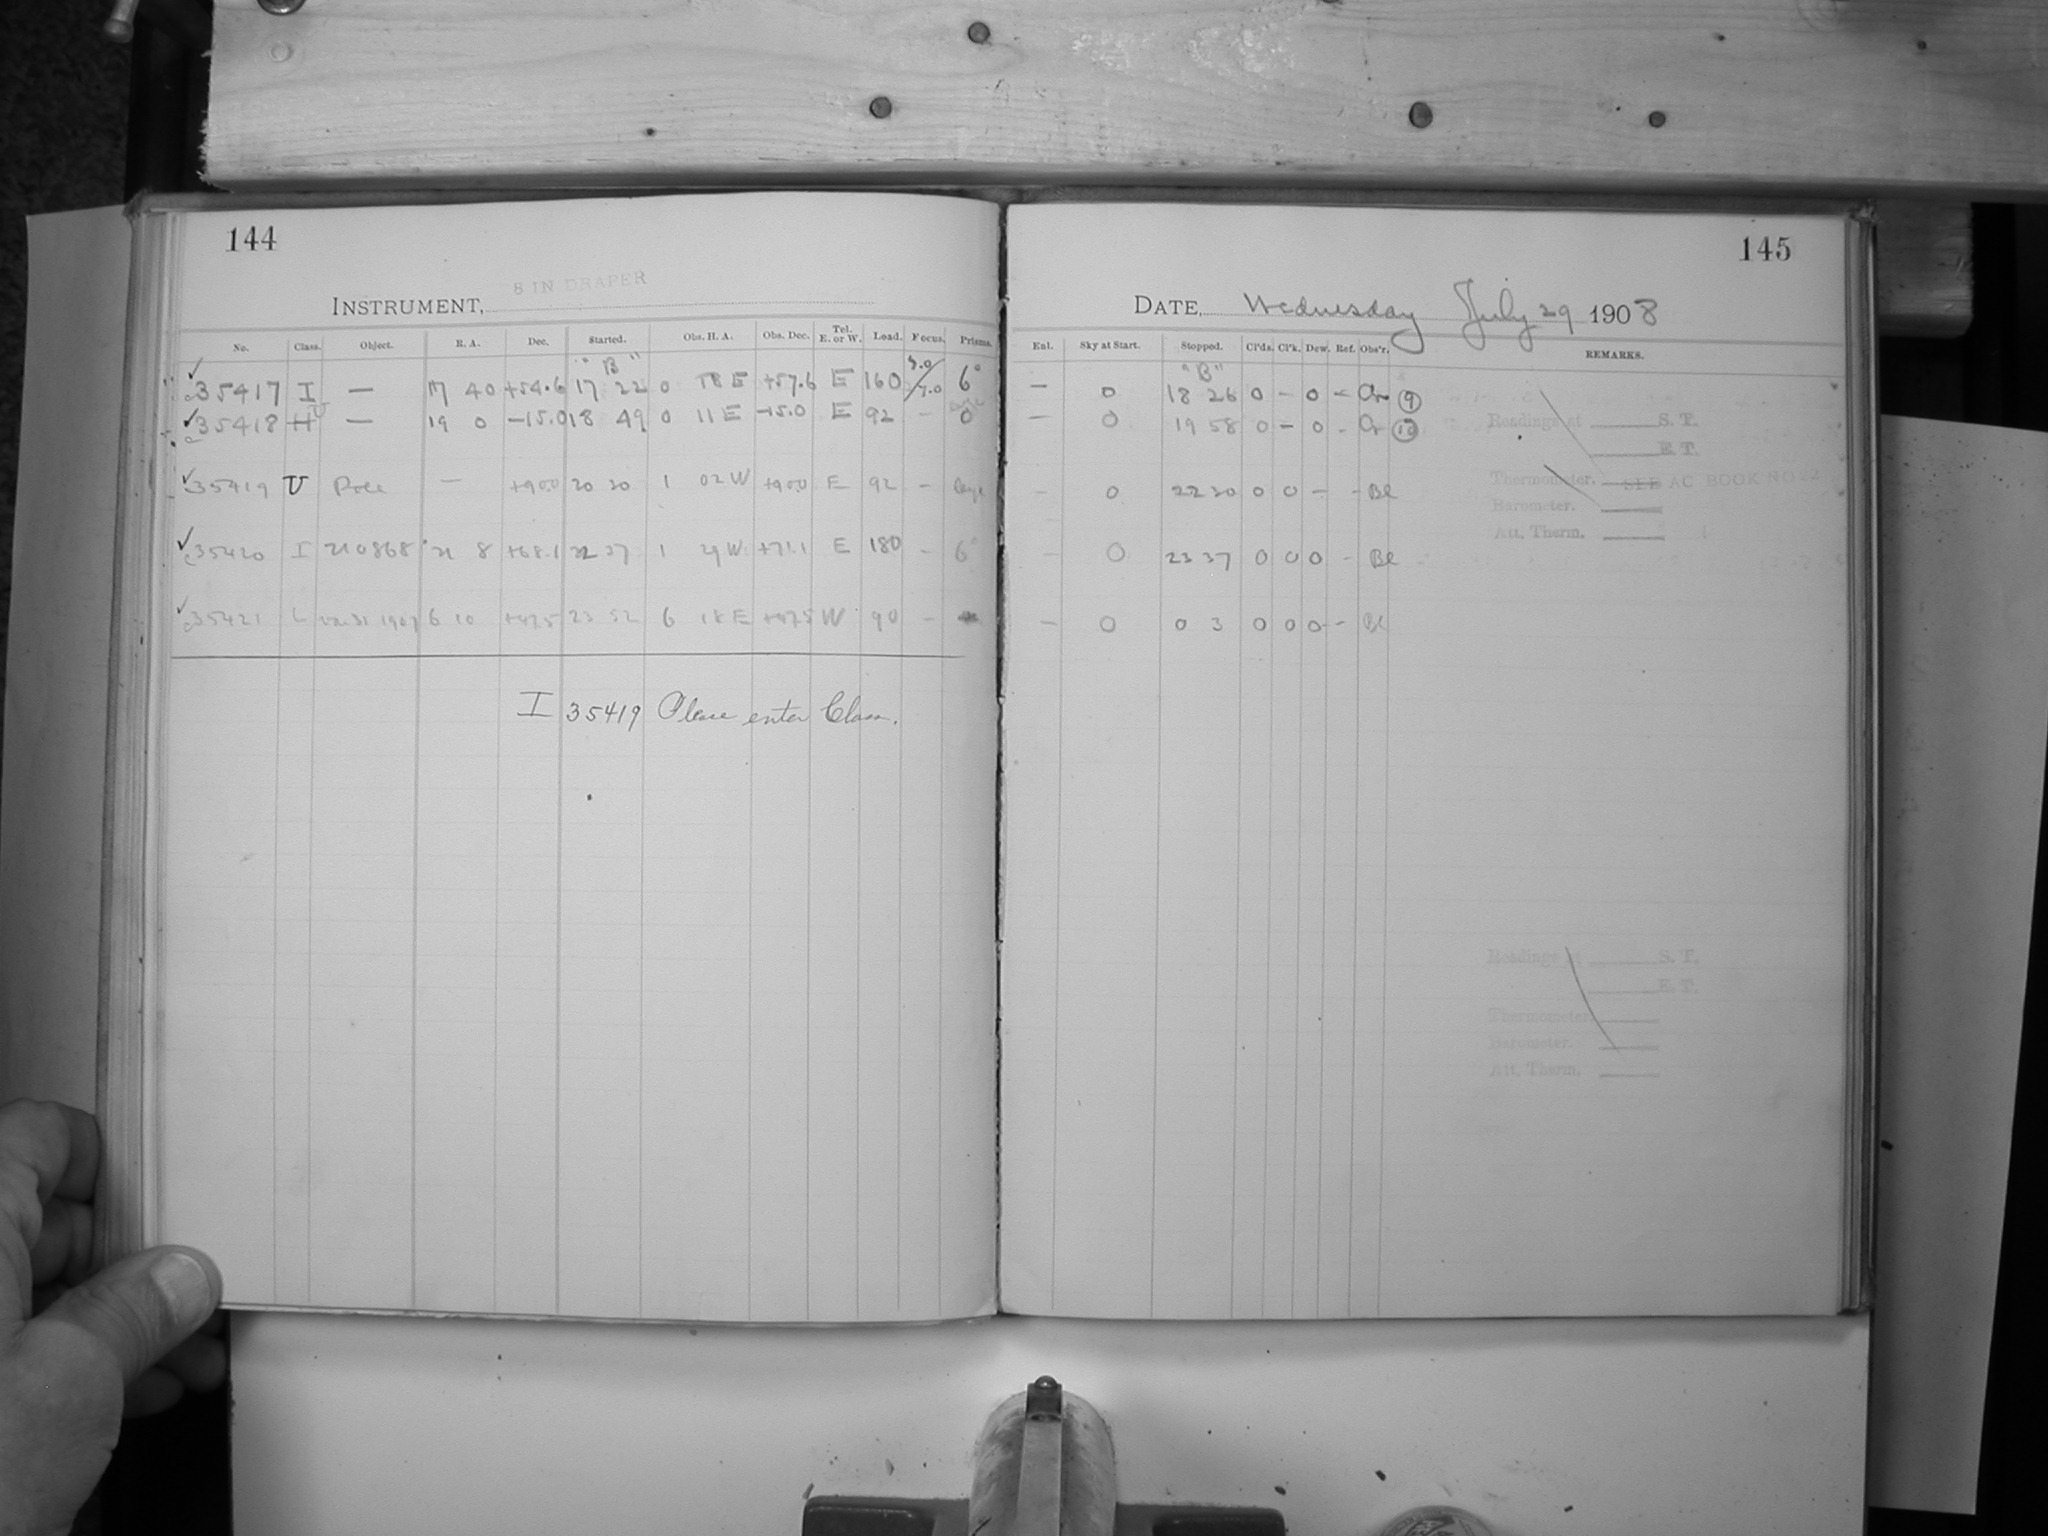 144
8 IN DRAPER
INSTRUMENT,
No. Class. Object. R. A. Dec. Started. Obs. H. A. Obs. Dec. Tel. E. or W. Load. Focus. Prisms.
"B"
35417 I — 17 40 +54.6 17 22 0 18 E +57.6 E 160 6°
35418 H U — 19 0 -15.0 18 49 0 11 E -15.0 E 92 - 0
35419 U Pole — +90.0 20 30 1 02 W +90.0 E 92 -
35420 I 210868 21 8 +68.1 22 37 1 29 W +71.1 E 180 - 6°
35421 6 10 +47.5 23 52 6 18 E +47.5 W 90 -
I 35419 Please enter Class.
145
DATE, Wednesday July 29 1908
Enl. Sky at Start. Stopped. Cl'ds. Cl'k. Dew. Ref. Obs'r. REMARKS.
"B"
— 0 18 26 0 - 0 - Cr 9
— 0 19 58 0 - 0 - Cr 10
- 0 22 30 0 0 - - Bl
- 0 23 37 0 0 0 - Bl
— 0 0 3 0 0 0 - Bl
Readings at S. T.
E. T.
Thermometer. SEE AC BOOK NO 22
Barometer.
Att. Therm.
Readings at S. T.
E. T.
Thermometer.
Barometer.
Att. Therm.